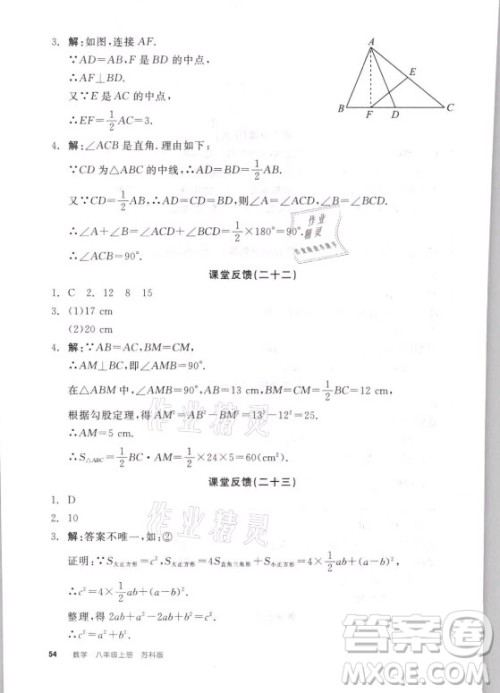 3. 解:如图,连接 AF.
∵AD=AB,F 是 BD 的中点,
∴AF⊥BD.
又∵E 是 AC 的中点,
∴EF=1/2AC=3.
A
E
B
F
D
C
4. 解:∠ACB 是直角.理由如下:
∵CD 为△ABC 的中线,∴AD=BD=1/2AB.
又∵CD=1/2AB,∴AD=CD=BD,则∠A=∠ACD,∠B=∠BCD.
∴∠A+∠B=∠ACD+∠BCD=1/2×180°=90°.
∴∠ACB=90°.
作业
精灵
课堂反馈(二十二)
1. C 2. 12 8 15
3. (1)17 cm
(2)20 cm
4. 解:∵AB=AC,BM=CM,
∴AM⊥BC,即∠AMB=90°.
在△ABM 中,∠AMB=90°,AB=13 cm,BM=12 cm,
根据勾股定理,得 AM²=AB²-BM²=13²-12²=25.
∴AM=5 cm.
∴S△ABC=1/2BC·AM=1/2×24×5=60(cm²).
作业精灵
课堂反馈(二十三)
1. D
2. 10
3. 解:答案不唯一,如②
证明:∵S大正方形=c²,S大正方形=4S直角三角形+S小正方形=4×1/2ab+(a-b)²,
∴c²=4×1/2ab+(a-b)².
整理,得 2ab+a²-2ab+b²=c².
∴c²=a²+b².
作业精灵
54 数学 八年级上册 苏科版
答案圈